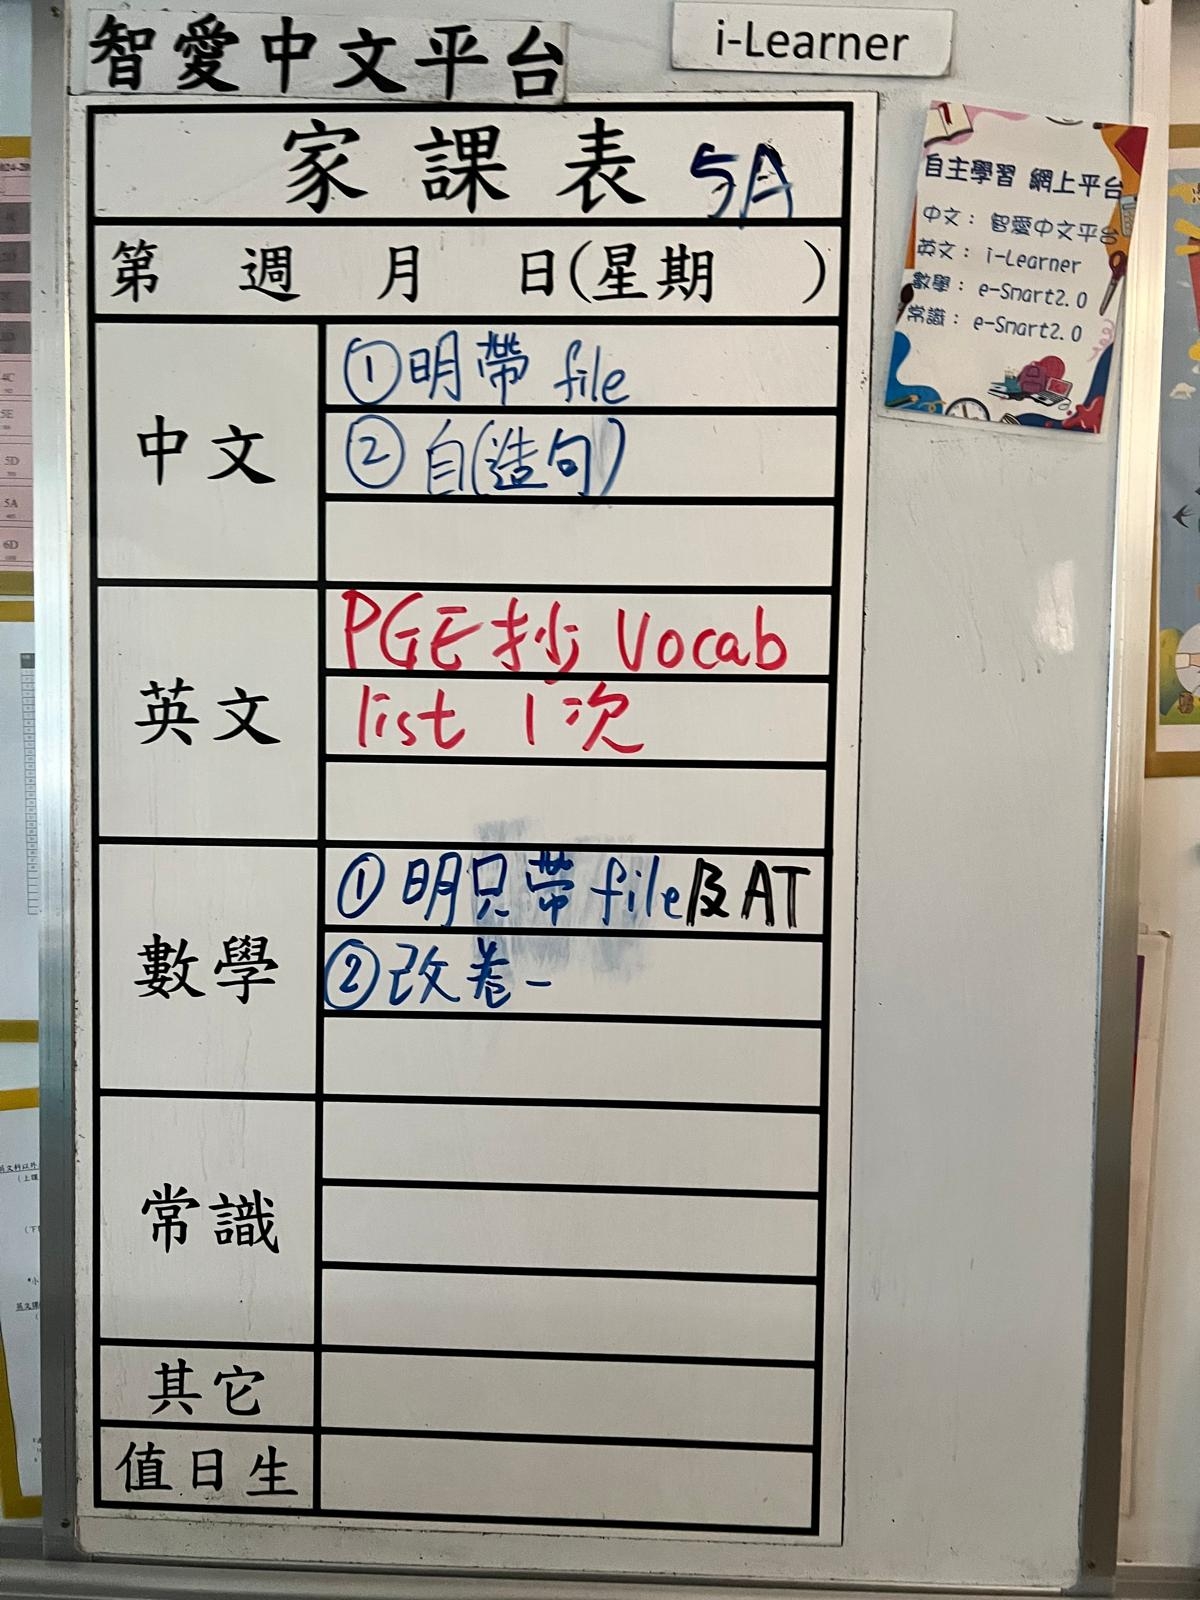 智愛中文平台
i-Learner
家課表 5A
第 週 月 日(星期 )
中文
①明帶 file
②自(造句)
英文
PGE抄 Vocab
list 1次
數學
①明只帶 file及AT
②改卷一
常識
其它
值日生
自主學習 網上平台
中文： 智愛中文平台
英文： i-Learner
數學： e-Smart2.0
常識： e-Smart2.0
4C
5E
5D
5A
6D